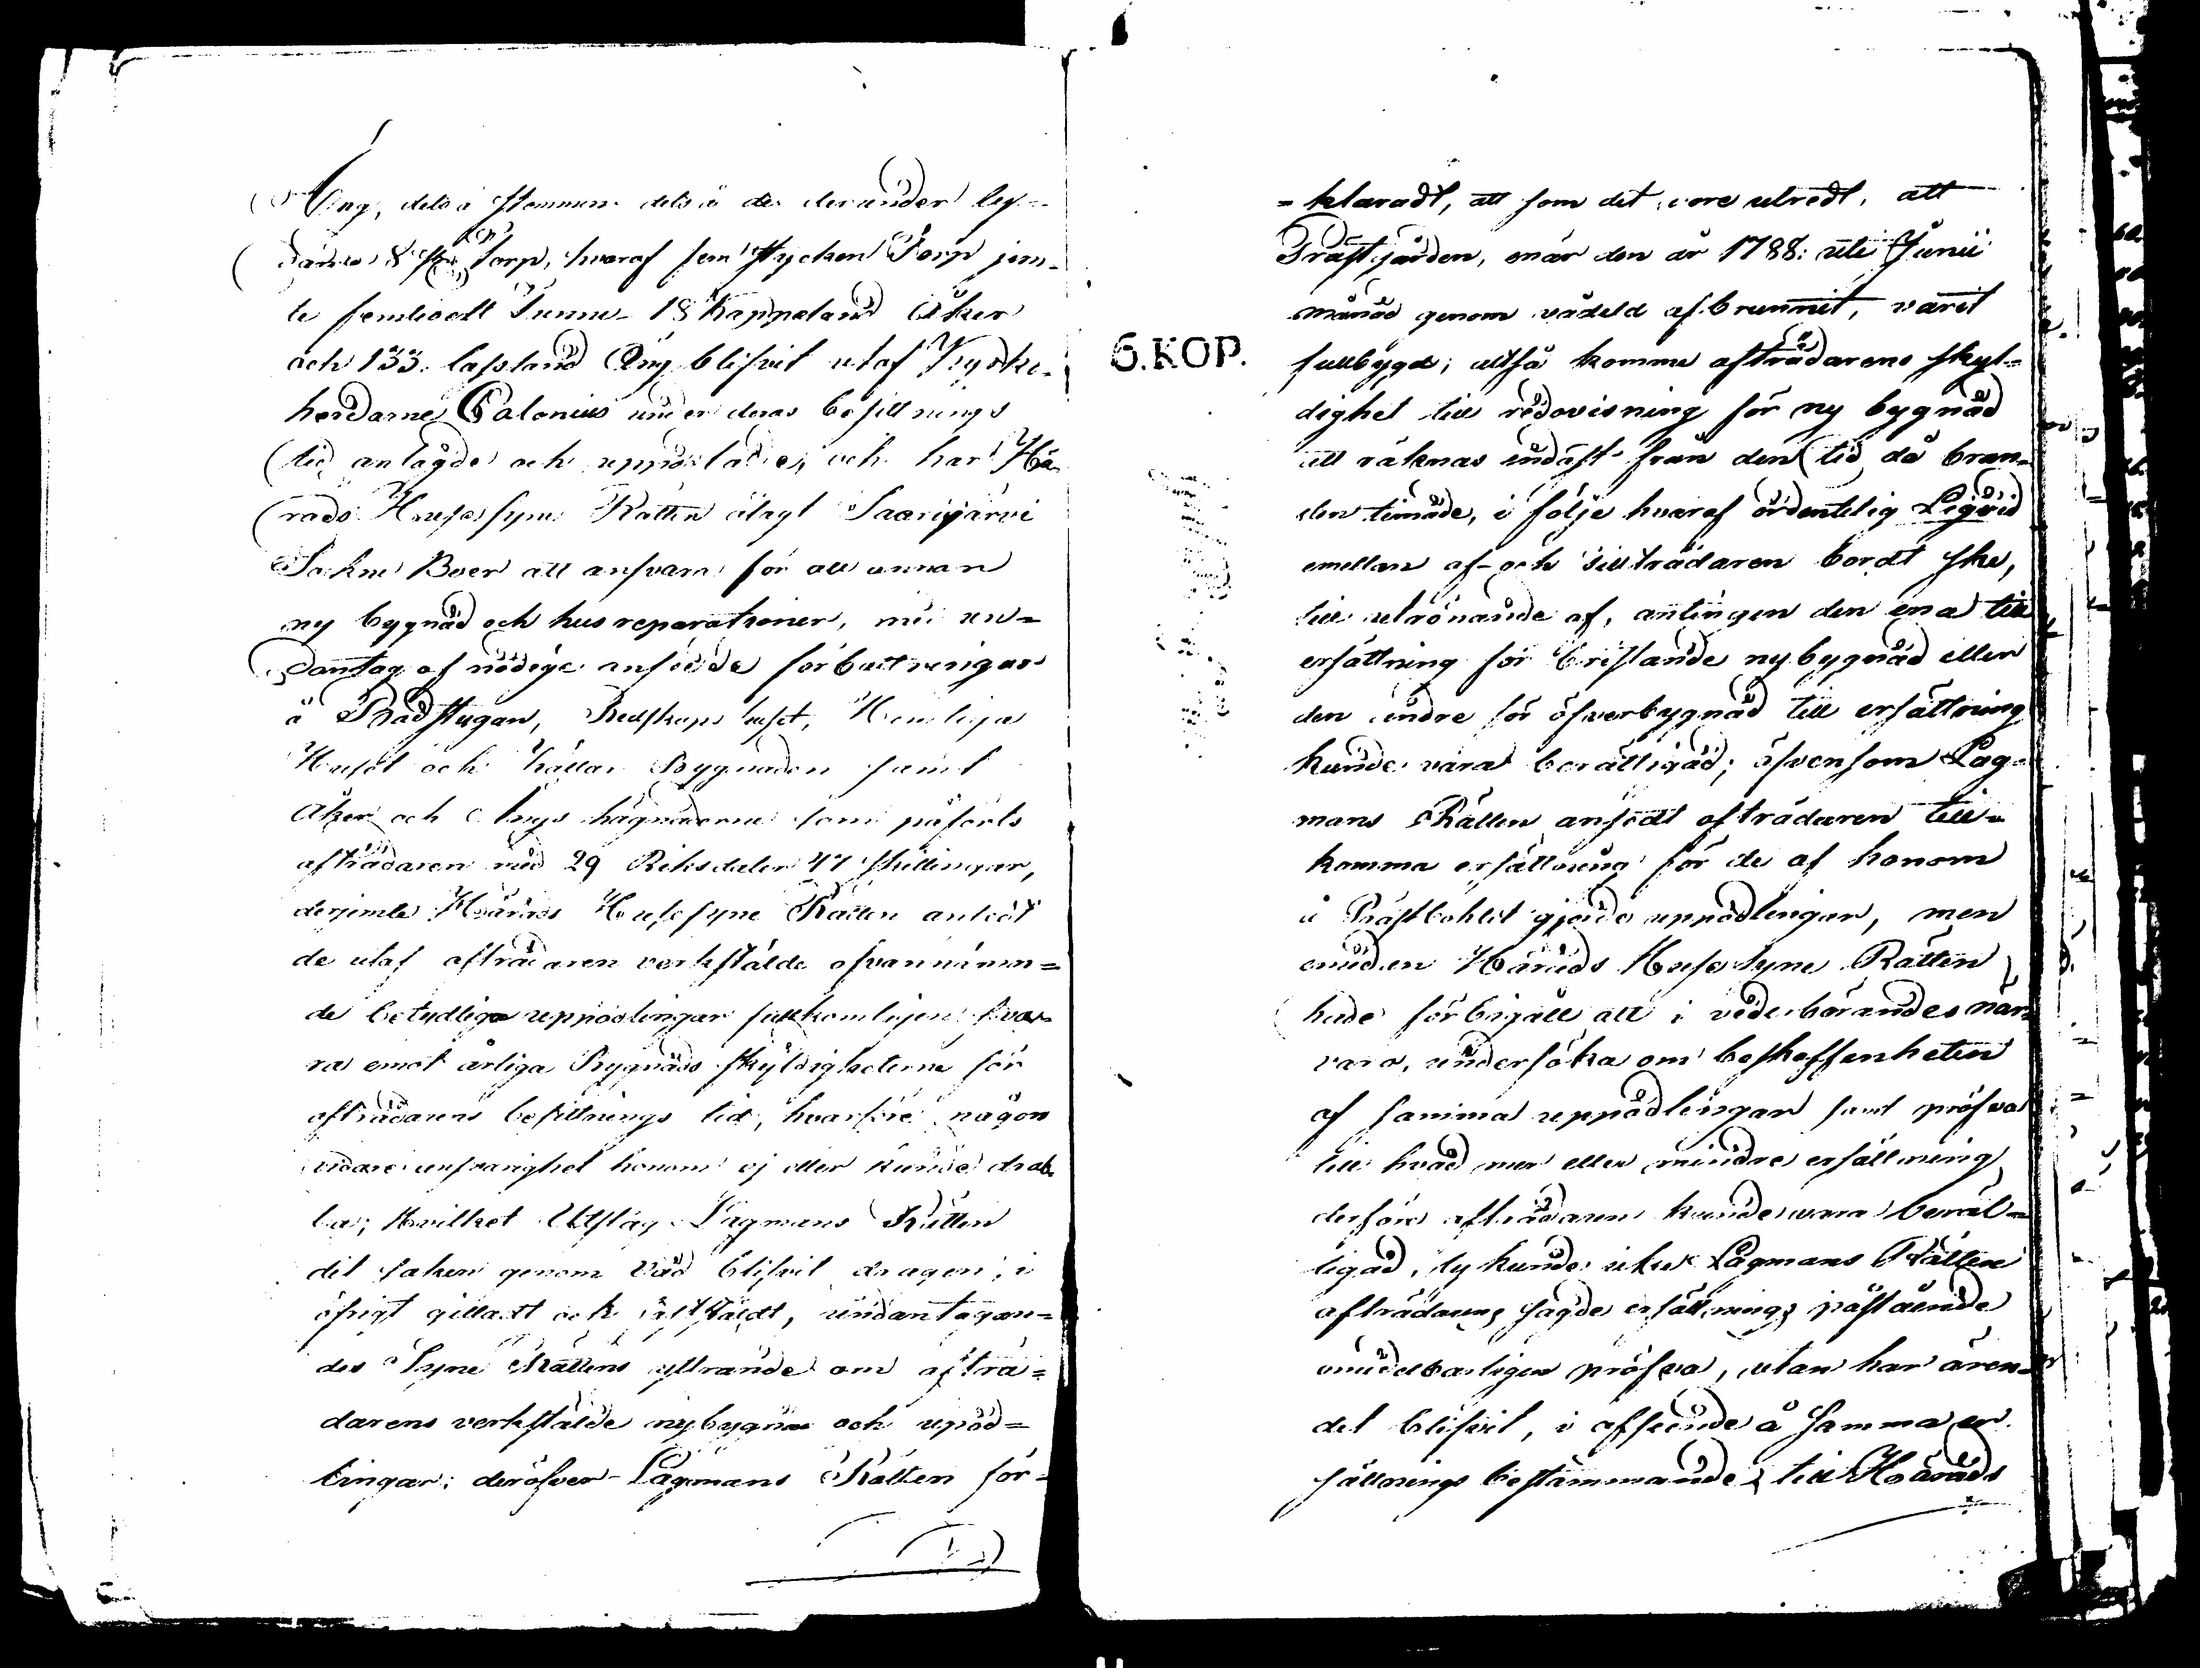 Äng, dels å Stommen dels å de derunder ly-
dande 8 st. Torp, hvaraf fem stycken Torp jem-
te femtiodt Tunne- 18 Kappeland Åker
och 133. lassland Äng blifvit utaf Kyrko-
herdarne Calonius under deras besittnings
tid anlagde och uppodlade; och har Hä-
rads Husesyne Rätten ålagt Saarijärvi
Sockne Boer att ansvara för all annan
ny bygnad och husreparationer, med un-
dantag af nödige ansedde förbättringar
å Badstugan, Redskaps huset, Hemliga
Huset och Källar Bygnaden samt
Åker och Ängs hägnaderne som påförts
afträdaren med 29 Riksdaler 47 skillingar,
derjemte Härads Husesyne Rätten ansedt
de utaf afträdaren verkstälde ofvannämn-
de betydliga uppodlingar fullkomligen sva-
ra emot årliga Bygnads skyldigheterne för
afträdarens besittnings tid, hvarföre någon
vidare ansvarighet honom ej eller kunde drab-
ba; Hvilket Utslag Lagmans Rätten
dit saken genom Vad blifvit dragen, i
öfrigt gilladt och fastställdt, undantagan-
des Syne Rättens yttrande om afträ-
darens verkstälde nybygnad och upod-
lingar; deröfver Lagmans Rätten för-
-klaradt, att som det vore utredt, att
Prästgården, när den år 1788: uti Junii
månad genom vådeld afbrunnit, varit
fullbygd; altså komme afträdarens skyl-
dighet till redovisning för ny bygnad
att räknas endast från den tid då bran-
den timade, i följe hvaraf ordentelig Liqvid
emellan af- och tillträdaren bordt ske,
till utrönande af, antingen den ena till
ersättning för bristande nybygnad eller
den andre för öfverbygnad till ersättning
kunde vara berättigad; äfvensom Lag-
mans Rätten ansedt afträdaren till-
komma ersättning för de af honom
å Prästbohlet gjorde uppodlingar, men
emedan Härads Husesyne Rätten
hade förbigått att i vederbörandes när-
varo, undersöka om beskaffenheten
af samma uppodlingar samt pröfva
till hvad mer eller mindre ersättning
derföre afträdaren kunde vara berät-
tigad, ty kunde icke Lagmans Rätten
afträdarens sagde ersättnings påstående
omedelbarligen pröfva, utan har ären-
det blifvit, i afseende å samma er-
sättnings bestämmande, till Härads
6.KOP.